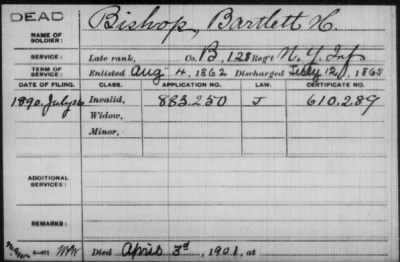 DEAD
NAME OF SOLDIER: Bishop, Bartlett H.
SERVICE: Late rank, Co. B, 128 Reg't N.Y. Inf
TERM OF SERVICE: Enlisted Aug 4, 1862 Discharged July 12, 1865
DATE OF FILING. CLASS. APPLICATION NO. LAW. CERTIFICATE NO.
1890. July Invalid, 883.250 J 610.289
Widow,
Minor,
ADDITIONAL SERVICES:
REMARKS:
Died April 3d, 1901, at